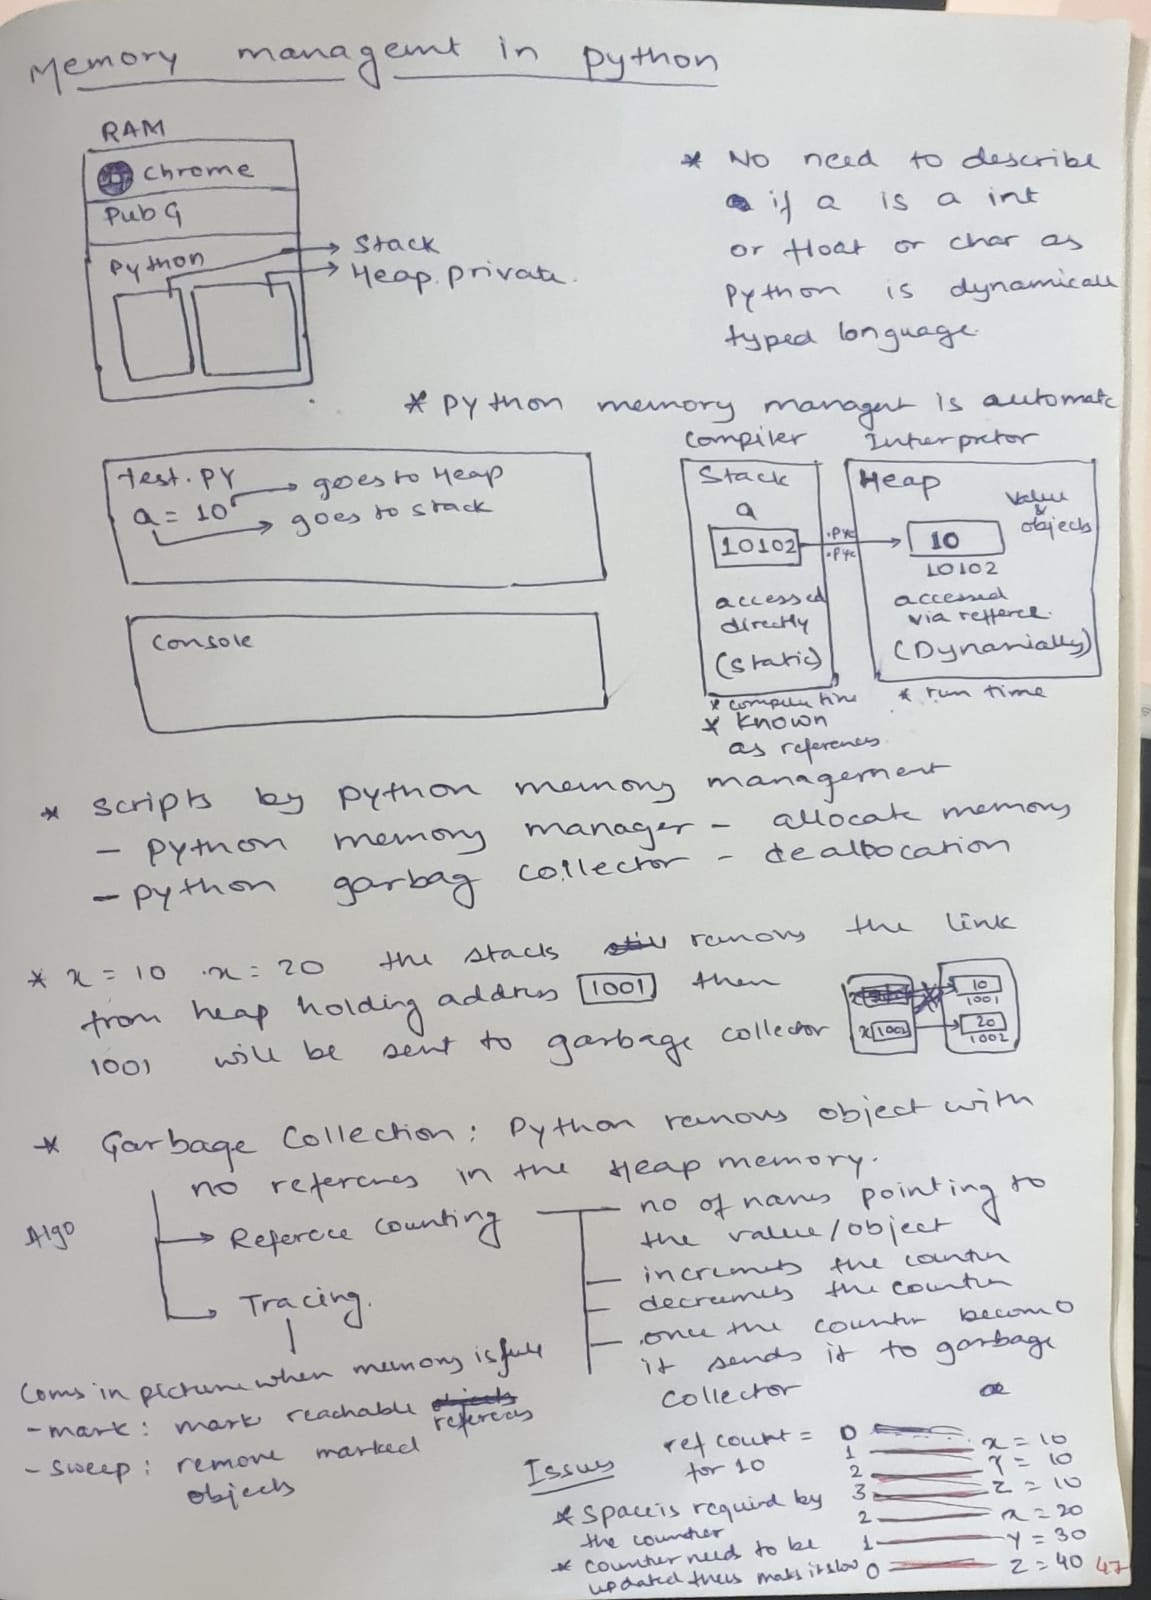 Memory managemt in python
RAM
chrome
PubG
Python
Stack
Heap private.
* No need to describe
if a is a int
or float or char as
Python is dynamicall
typed language.
* Python memory managent is automatc
Test.py
a = 10
goes to Heap
goes to stack
Console
Compiler
Stack
a
10102
accessed
directly
(static)
.pyc
.pyc
Interpretor
Heap
Value
&
objects
10
10102
accessed
via refference.
(Dynamially)
* run time
* Known
as references
* scripts by python memory management
- python memory manager - allocate memory
- python garbag collector - deallocation
* x = 10 x = 20 the stacks removs the link
from heap holding address 1001 then
1001 will be sent to garbage collector
10
1001
x 1002
20
1002
* Garbage Collection: Python removs object with
no references in the Heap memory.
Algo
Referece counting
no of names pointing to
the value/object
increments the counter
decrements the counter
once the counter becom 0
it sends it to garbage
collector
Tracing.
Coms in picture when memory is full
- mark: mark reachable references
- sweep: remove marked
objects
Issues
* Space is required by
the counter
* counter need to be
updated thus maks it slow
ref count =
for 10
0
1 x = 10
2 Y = 10
3 Z = 10
2 x = 20
1 Y = 30
0 Z = 40
47